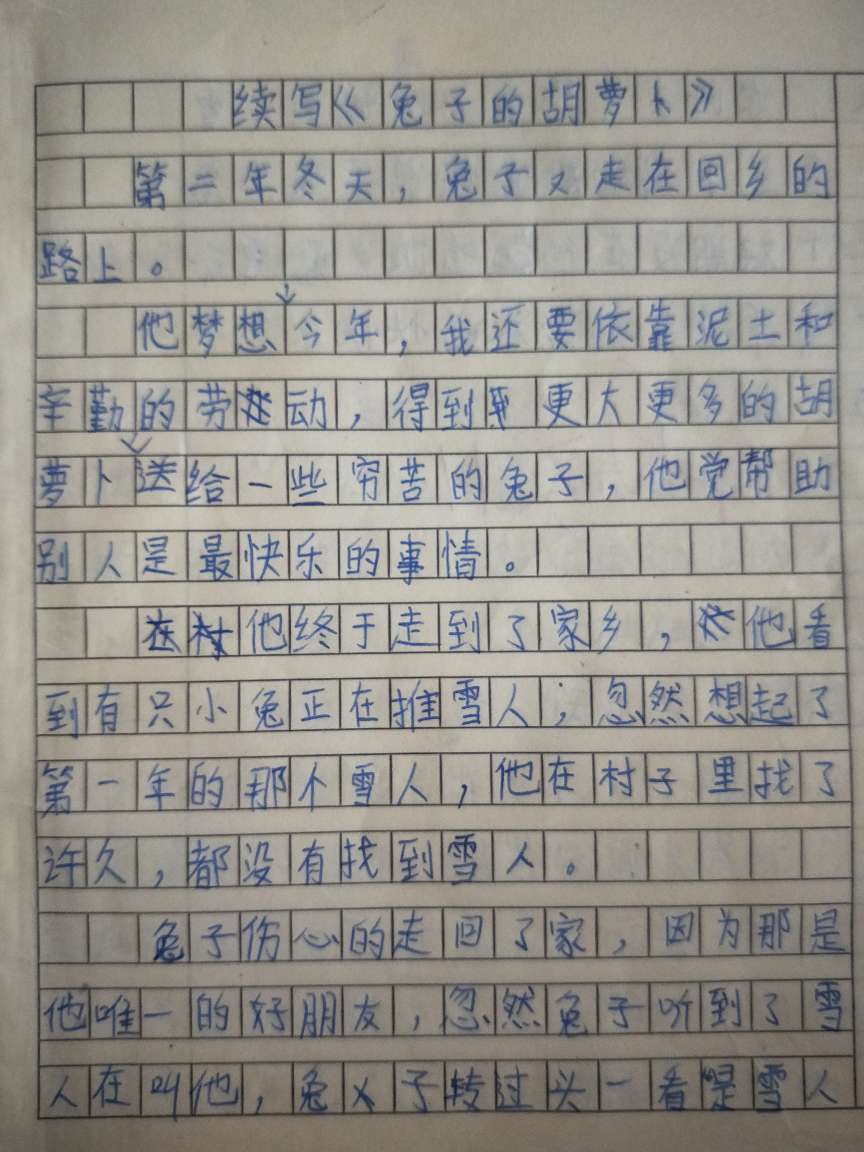 续写《兔子的胡萝卜》
第二年冬天，兔子又走在回乡的
路上。
他梦想今年，我还要依靠泥土和
辛勤的劳动，得到更大更多的胡
萝卜送给一些穷苦的兔子，他觉帮助
别人是最快乐的事情。
他终于走到了家乡，他看
到有只小兔正在推雪人，忽然想起了
第一年的那个雪人，他在村子里找了
许久，都没有找到雪人。
兔子伤心的走回了家，因为那是
他唯一的好朋友，忽然兔子听到了雪
人在叫他，兔子转过头一看是雪人